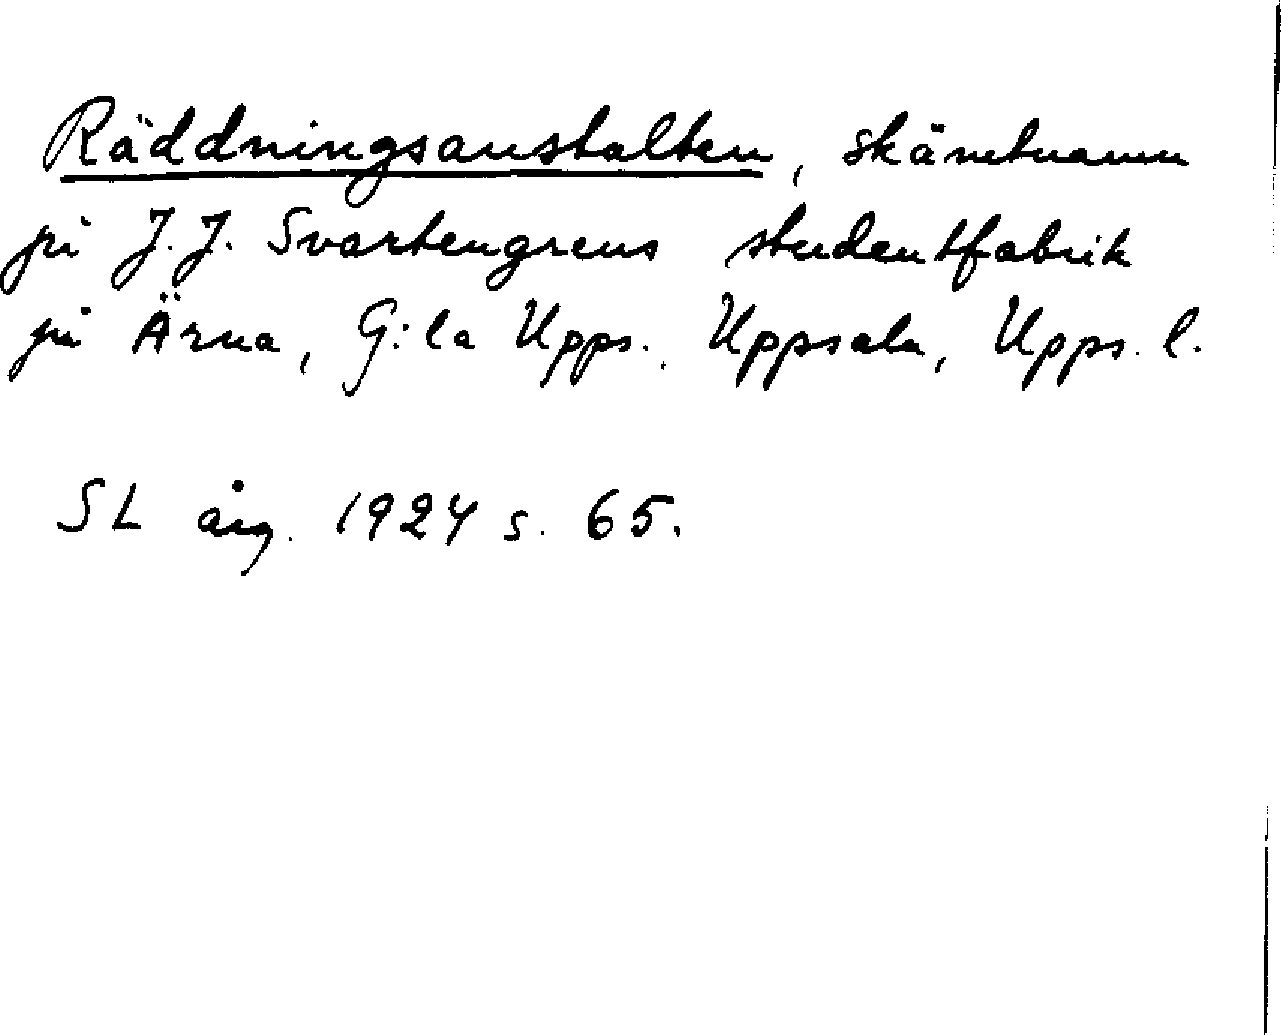 Räddningsanstalten, skämtnamn
på J. J. Svartengrens studentfabrik
på Ärna, G:la Upps., Uppsala, Upps. l.
SL årg. 1924 s. 65.